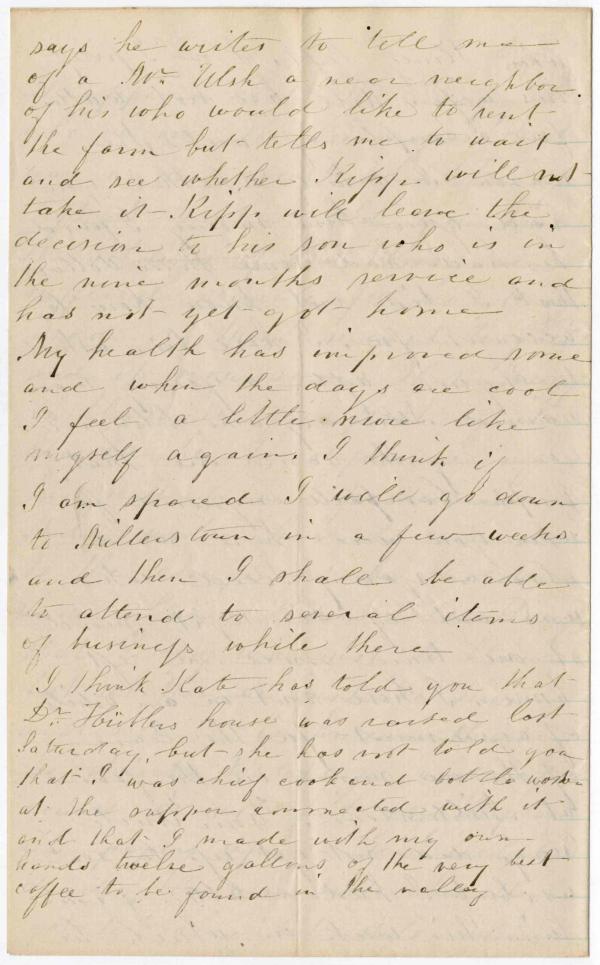 says he writes to tell me
of a Mr. Ulsh a near neighbor
of his who would like to rent
the farm but tells me to wait
and see whether Kipp will not
take it Kipp will leave the
decision to his son who is in
the nine months service and
has not yet got home
My health has improved some
and when the days are cool
I feel a little more like
myself again. I think if
I am spared I will go down
to Millerstown in a few weeks
and then I shall be able
to attend to several items
of business while there
I think Kate has told you that
Dr. Hüblers house was raised last
Saturday, but she has not told you
that I was chief cook and bottle washer
at the supper connected with it
and that I made with my own
hands twelve gallons of the very best
coffee to be found in the valley.